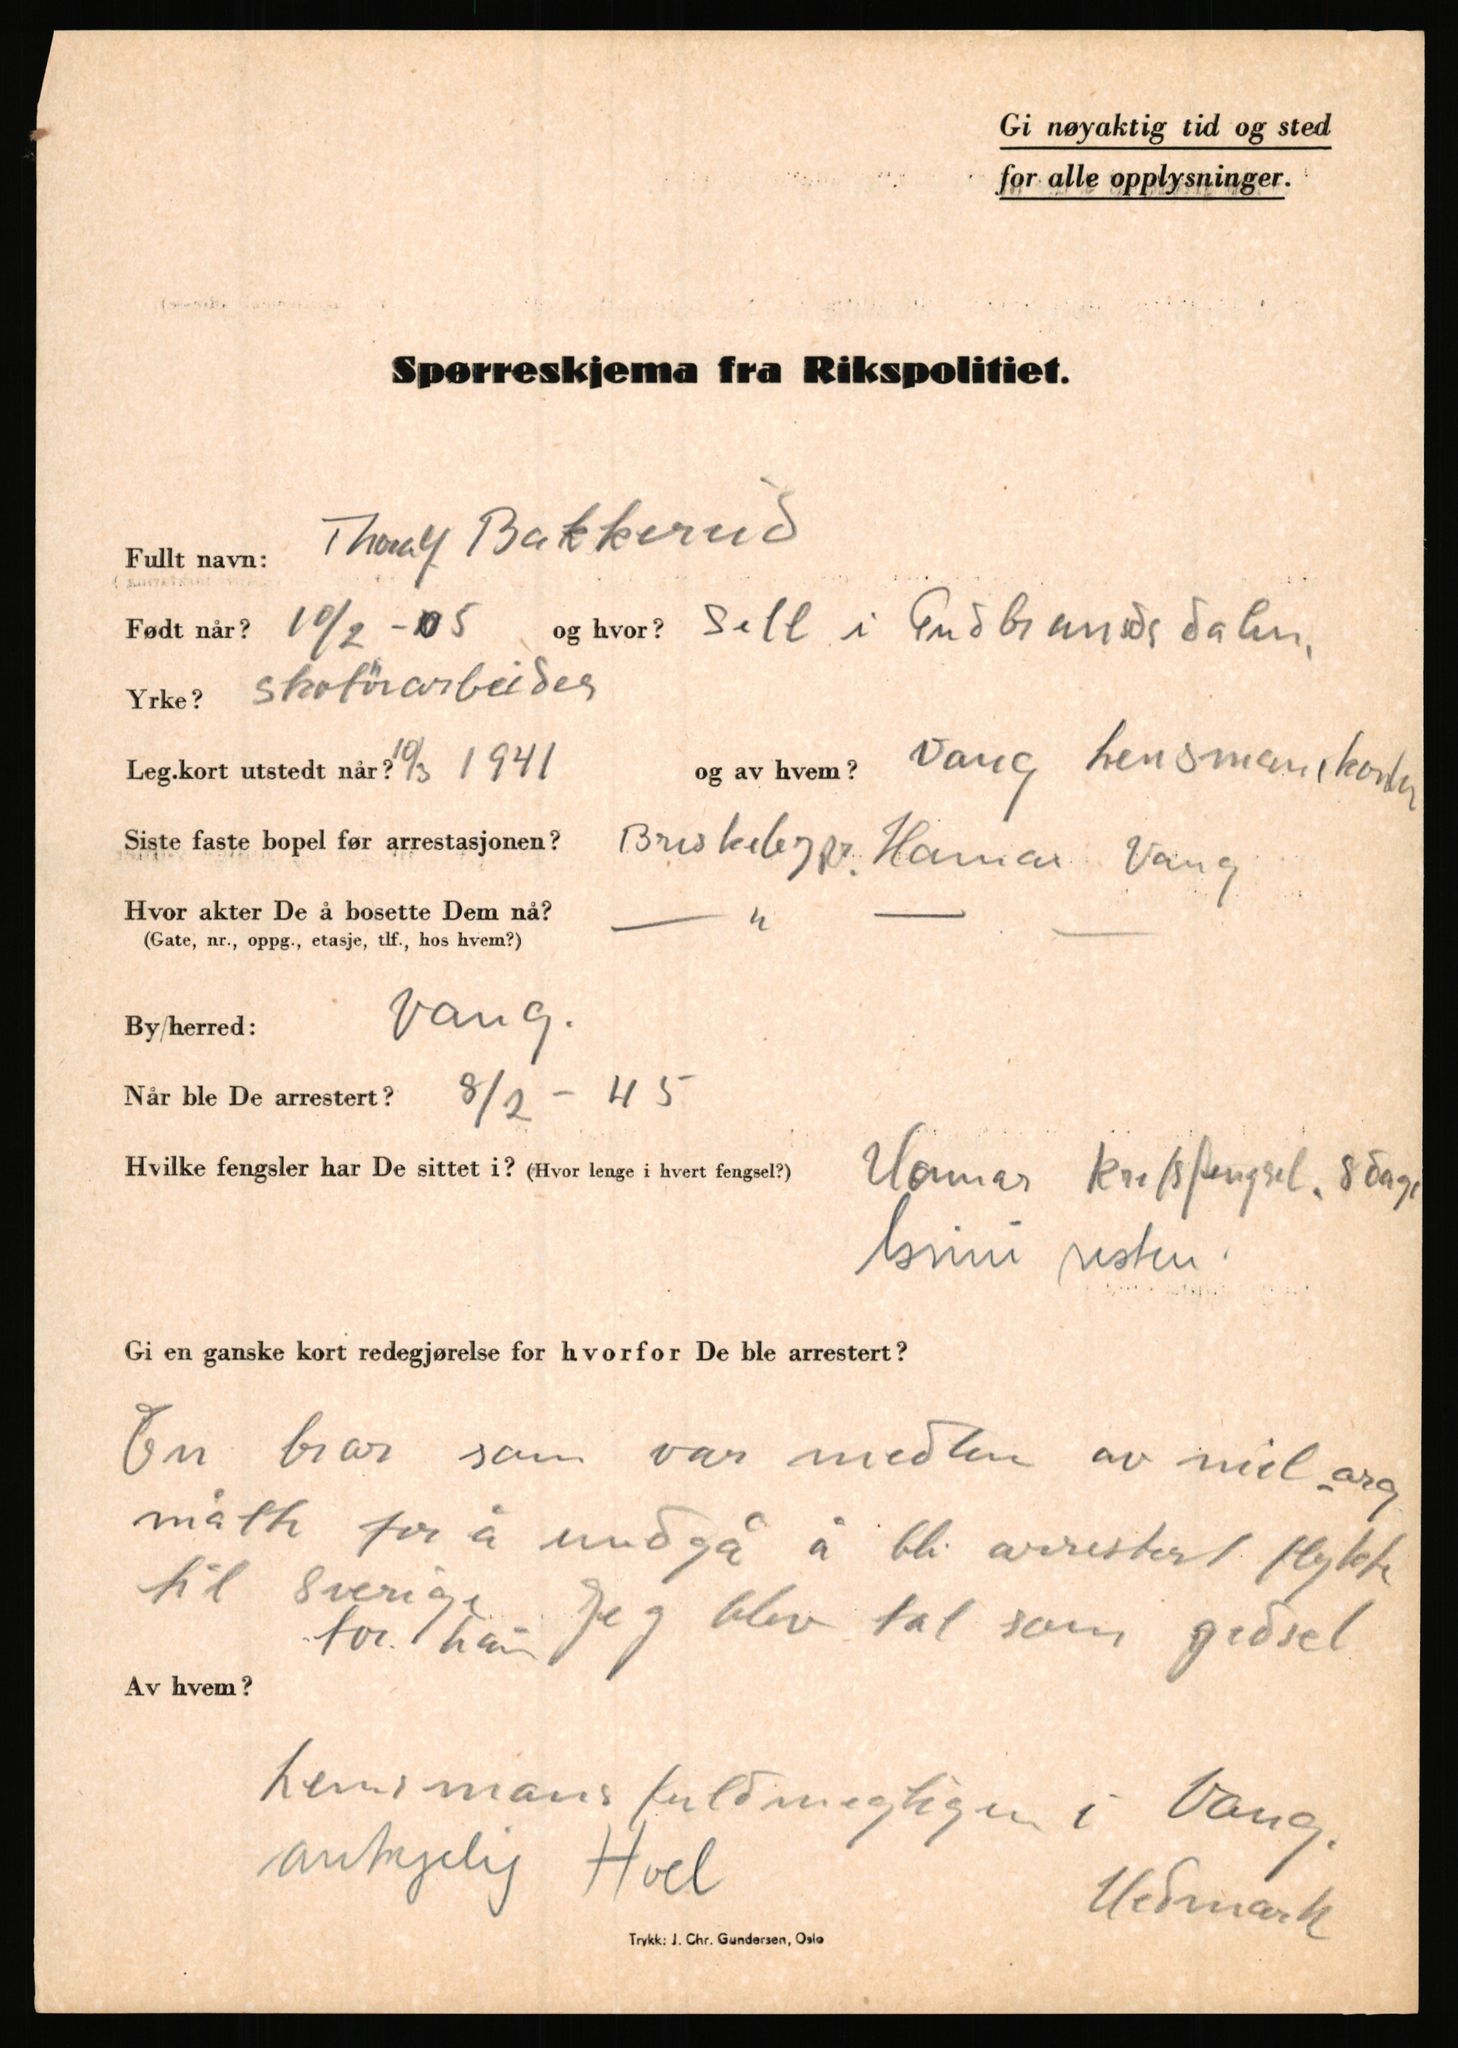 Gi nøyaktig tid og sted
for alle opplysninger.
Spørreskjema fra Rikspolitiet.
Fullt navn: Thoralf Bakkerud
Født når? 10/2 - 05 og hvor? Sell i Gudbrandsdalen.
Yrke? skotöiarbeider
Leg.kort utstedt når? 10/3 1941 og av hvem? Vang lensmanskontor
Siste faste bopel før arrestasjonen? Briskebypr. Hamar Vang
Hvor akter De å bosette Dem nå? — " — —
(Gate, nr., oppg., etasje, tlf., hos hvem?)
By/herred: Vang.
Når ble De arrestert? 8/2 - 45
Hvilke fengsler har De sittet i? (Hvor lenge i hvert fengsel?) Hamar kretsfengsel. 8 dage
Grini resten.
Gi en ganske kort redegjørelse for hvorfor De ble arrestert?
En bror som var medlem av mil org
måtte for å undgå å bli arrestert flykte
til Sverige Jeg blev tat som gidsel
for. ham
Av hvem?
Lensmans fuldmegtigen i Vang.
Hoel
Hedmark
Trykk: J. Chr. Gundersen, Oslo